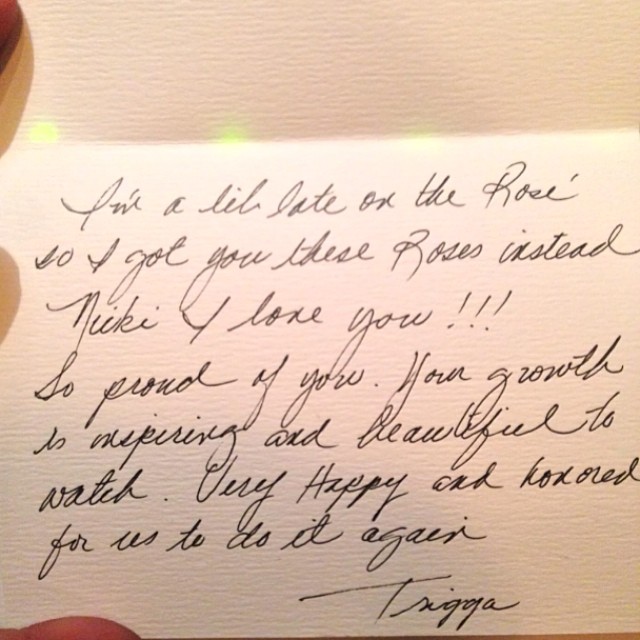 I'm a lil late on the Rosé
so I got you these Roses instead
Nicki I love you!!!
So proud of you. Your growth
is inspiring and beautiful to
watch. Very Happy and honored
for us to do it again
— Trigga